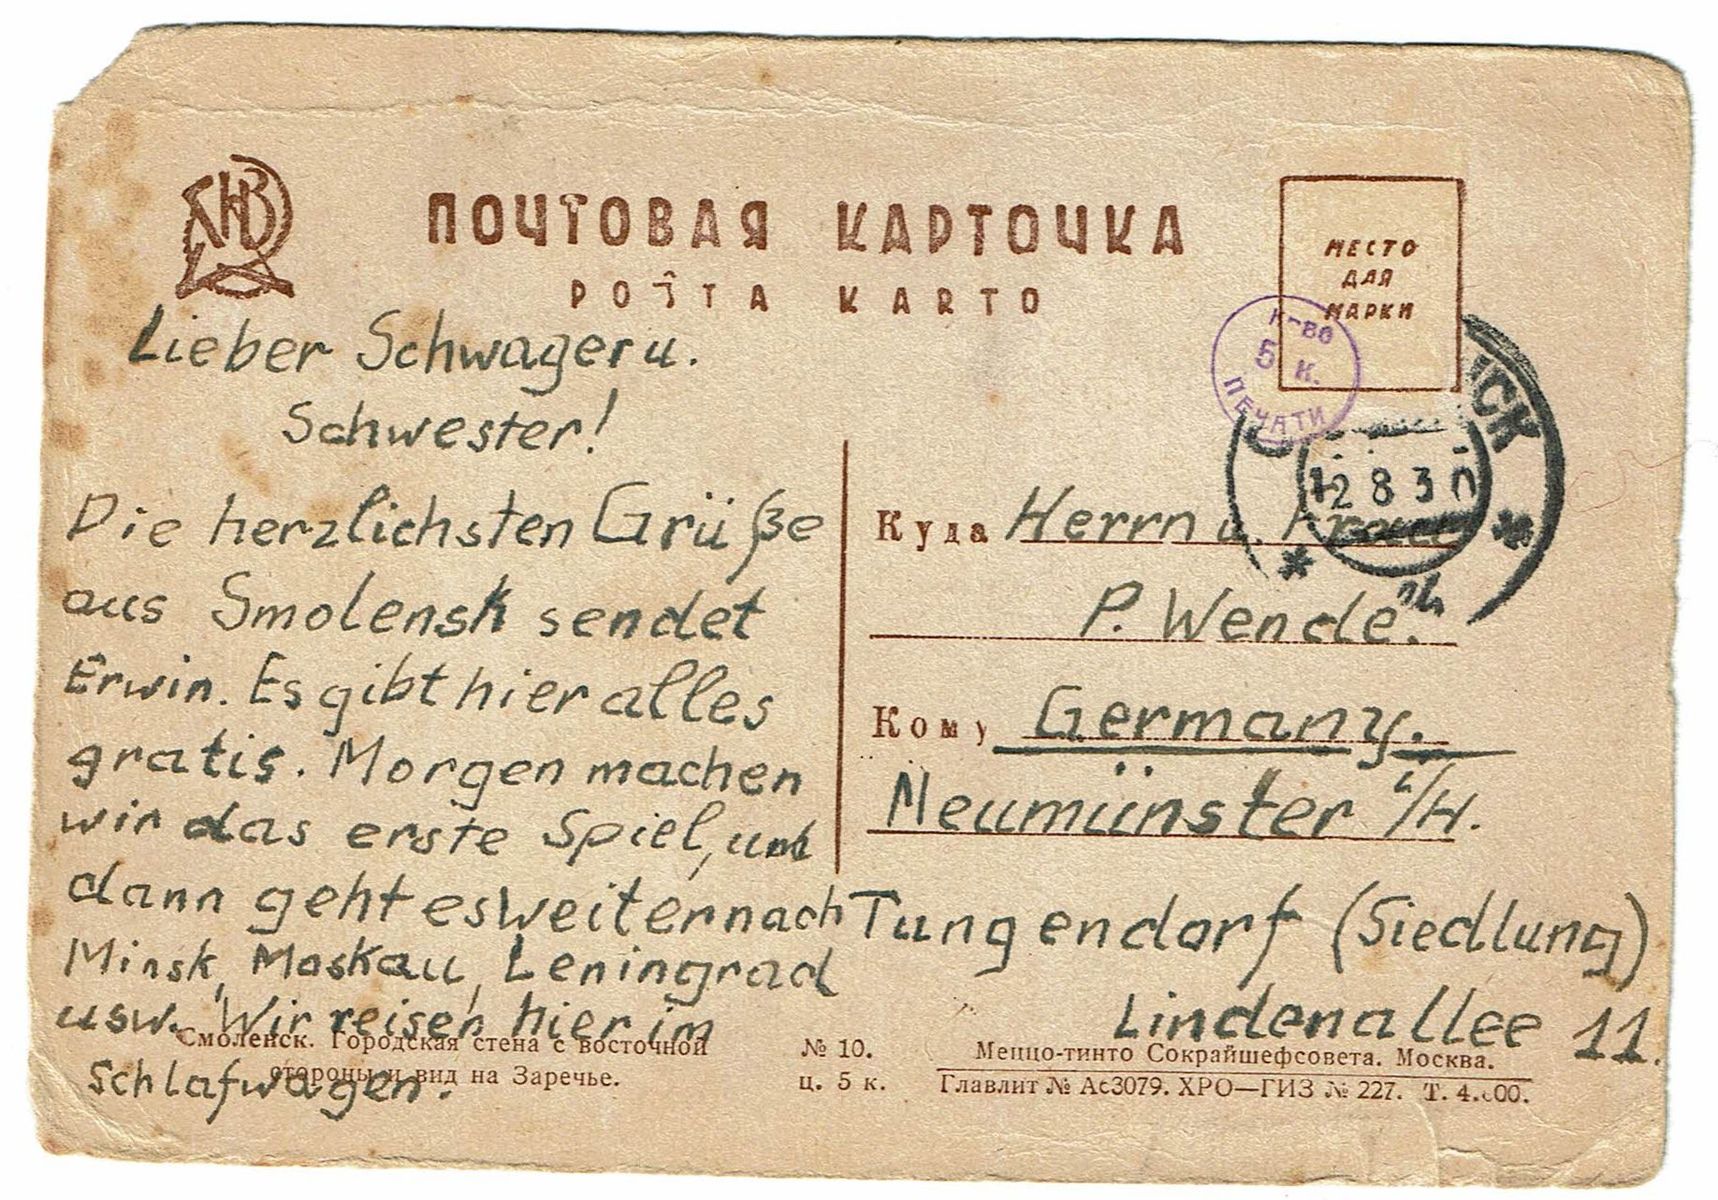 ПОЧТОВАЯ КАРТОЧКА
POŜTA KARTO
МЕСТО
ДЛЯ
МАРКИ
К-ВО
5 К.
ПЕЧАТИ
СК
12 8 30
Lieber Schwager u.
Schwester!
Die herzlichsten Grüße
aus Smolensk sendet
Erwin. Es gibt hier alles
gratis. Morgen machen
wir das erste Spiel, und
dann geht es weiter nach
Minsk, Moskau, Leningrad
usw. Wir reisen hier im
Schlafwagen.
Куда Herrn u. Frau
P. Wende.
Кому Germany.
Neumünster i/H.
Tungendorf (Siedlung)
Lindenallee 11.
Смоленск. Городская стена с восточной
стороны и вид на Заречье.
№ 10.
ц. 5 к.
Меццо-тинто Сокрайшефсовета. Москва.
Главлит № Ас3079. ХРО—ГИЗ № 227. Т. 4.000.